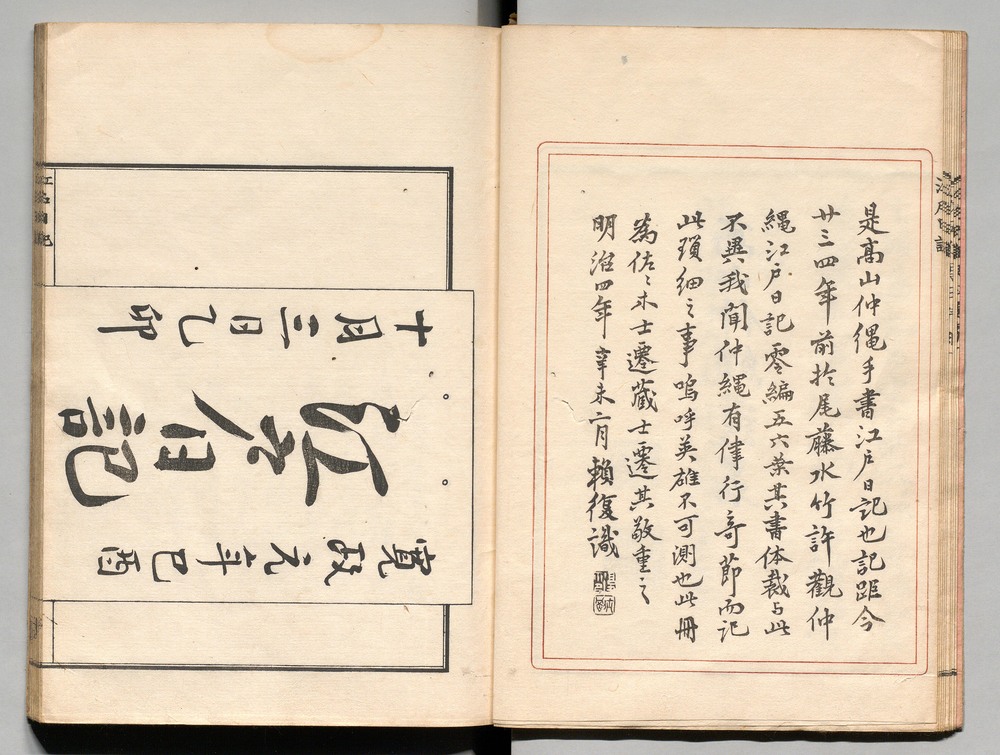 是高山仲縄手書江戸日記也記距今
廿三四年前於尾藤水竹許觀仲
縄江戸日記零編五六葉其書体裁与此
不異我聞仲縄有偉行奇節而記
此瑣細之事嗚呼英雄不可測也此冊
為佐々木士遷蔵士遷其敬重之
明治四年辛未六月頼復識
寛政元年己酉
江戸日記
十月三日乙卯